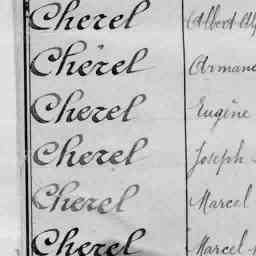 Cherel Albert
Cherel Armand
Cherel Eugène
Cherel Joseph
Cherel Marcel
Cherel Marcel